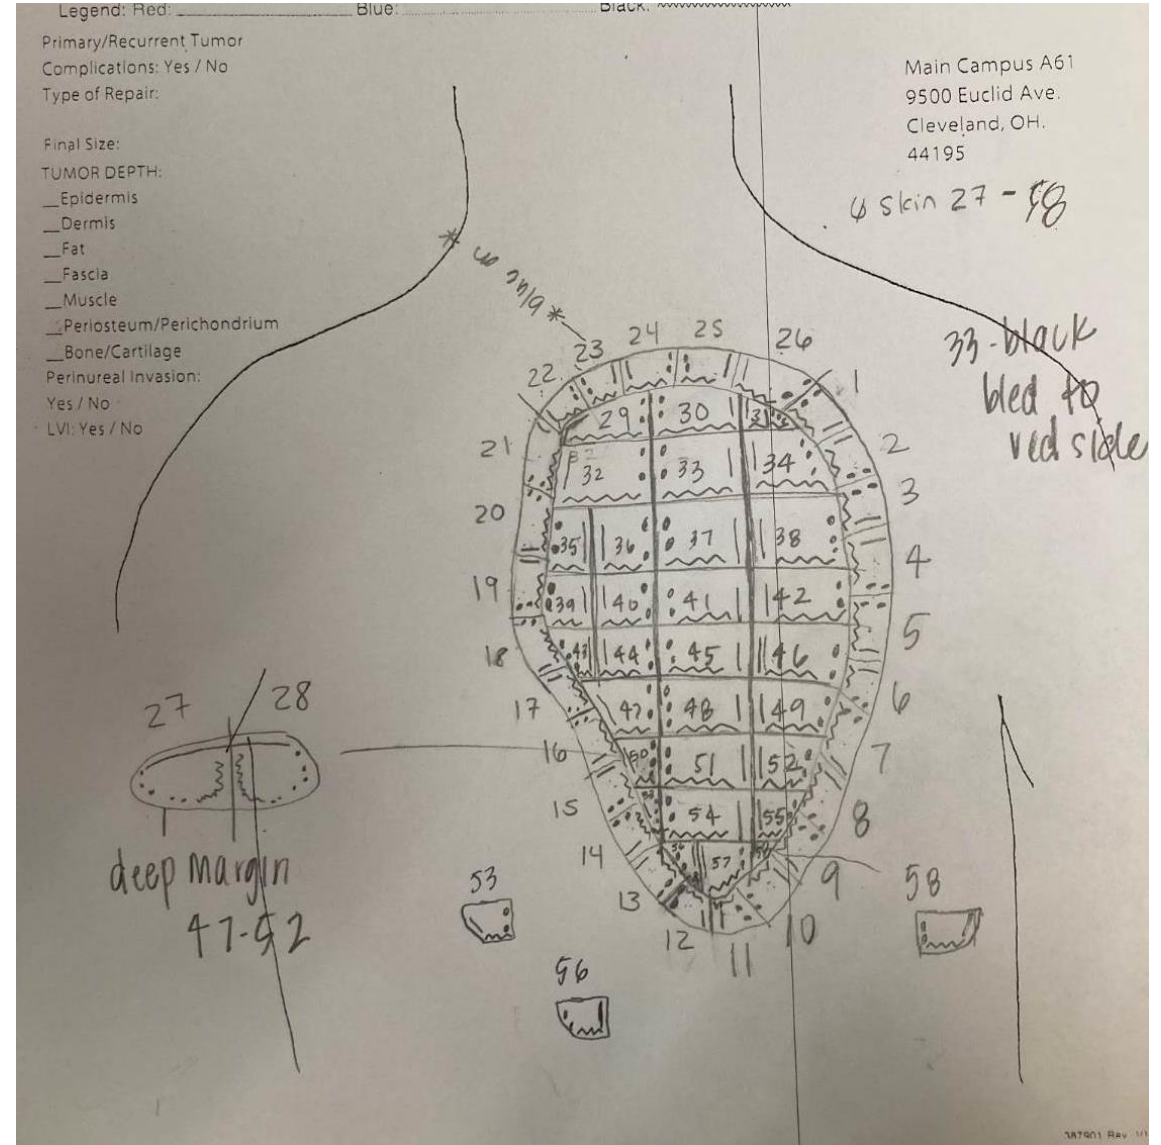 Legend: Red: Blue: Black:
Primary/Recurrent Tumor
Complications: Yes / No
Type of Repair:
Final Size:
TUMOR DEPTH:
__Epidermis
__Dermis
__Fat
__Fascia
__Muscle
__Periosteum/Perichondrium
__Bone/Cartilage
Perinureal Invasion:
Yes / No
LVI: Yes / No
Main Campus A61
9500 Euclid Ave.
Cleveland, OH.
44195
skin 27 - 58
* blue on *
33-black
bled to
red side
22 23 24 25 26
1
21 2
20 3
19 4
18 5
17 6
16 7
15 8
14 9
13 10
12 11
29 30 31
32 33 34
35 36 37 38
39 40 41 42
43 44 45 46
47 48 49
50 51 52
53 54 55
56 57 58
27 28
deep margin
47-52
53
56
58
387901 Rev